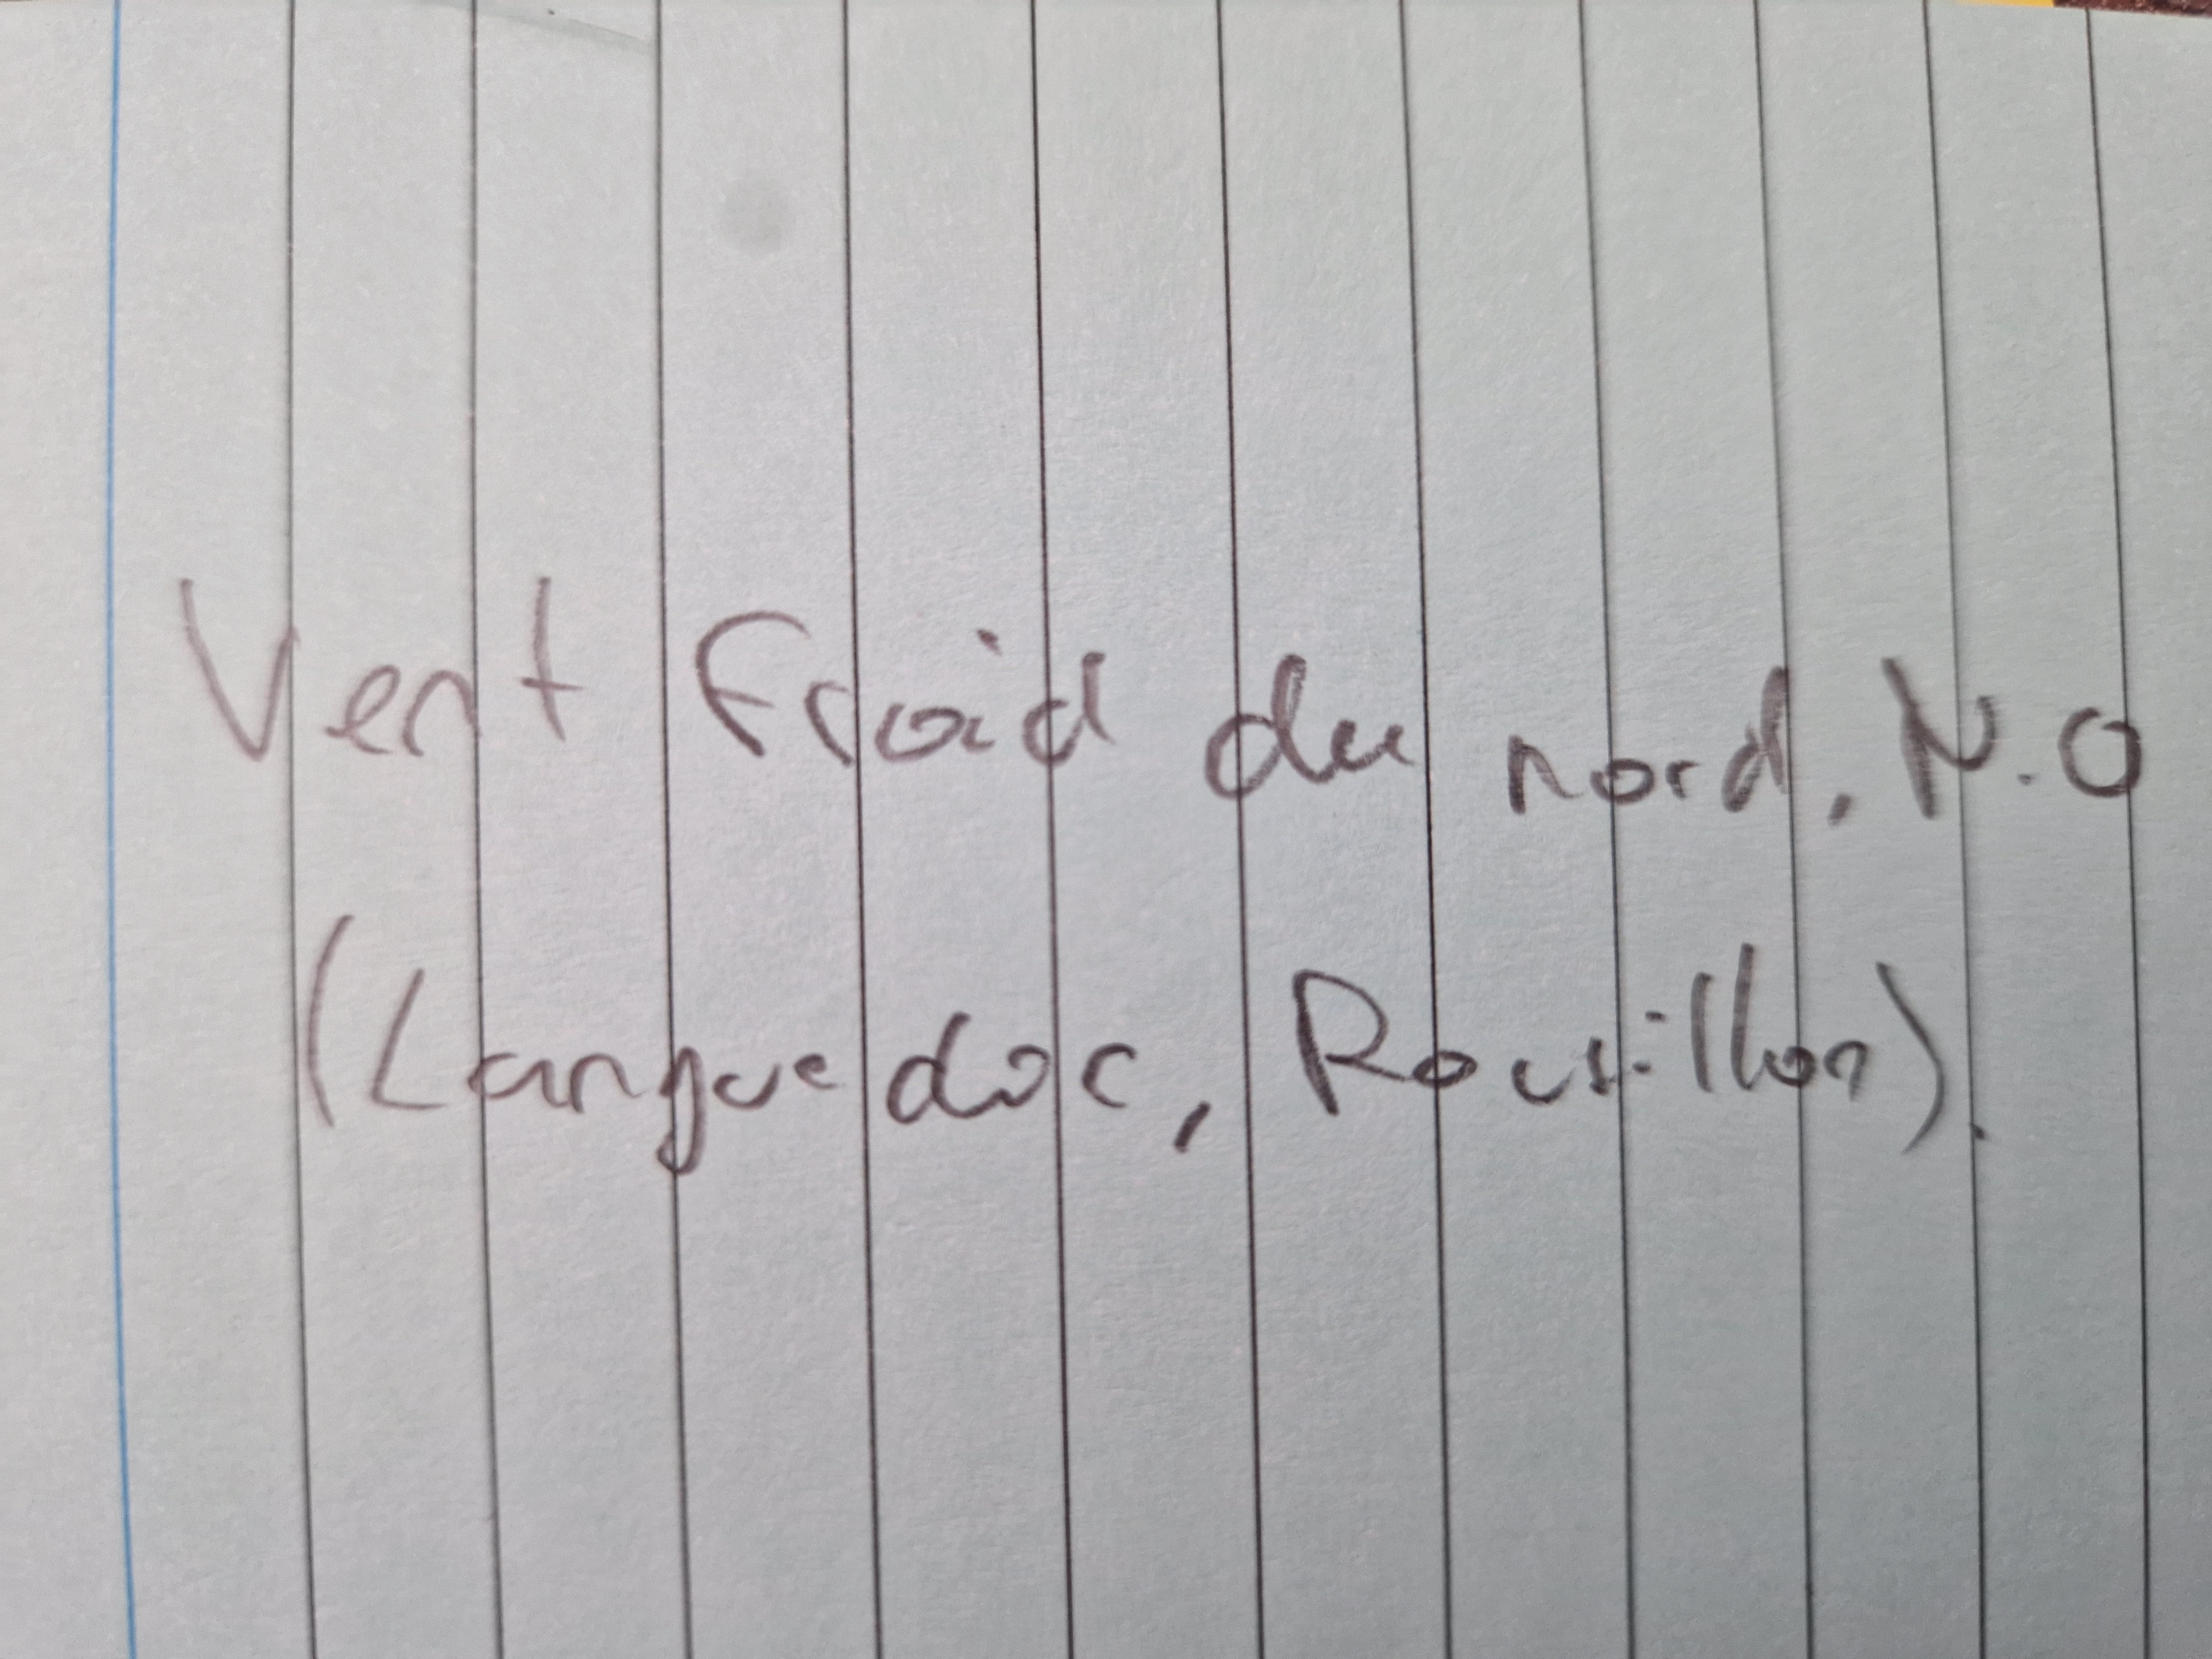 Vent froid du nord, N.O
(Languedoc, Roussillon).